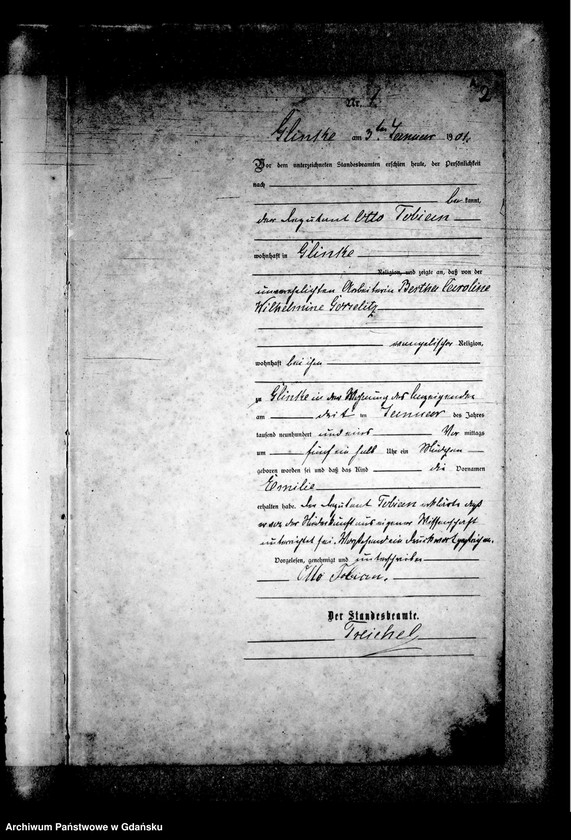 2
Nr. 1.
Glinke am 3ten Januar 1901.
Vor dem unterzeichneten Standesbeamten erschien heute, der Persönlichkeit
nach
be kannt,
der Deputant Otto Tobian
wohnhaft in Glinke
Religion, und zeigte an, daß von der
unverehelichten Arbeiterin Bertha Caroline
Wilhelmine Gorselitz
evangelischer Religion,
wohnhaft bei ihm
zu Glinke in der Wohnung des Anzeigenden
am Januar des Jahres
tausend neunhundert und eins Vor mittags
um fünf ein halb Uhr ein Mädchen
geboren worden sei und daß das Kind die Vornamen
Emilie
erhalten habe. Der Deputant Tobian erklärte daß
er von der Niederkunft aus eigener Wissenschaft
unterrichtet sei. Vorstehend ein Druckwort gestrichen.
Vorgelesen, genehmigt und unterschrieben
Otto Tobian.
Der Standesbeamte.
Treichel
Archiwum Państwowe w Gdańsku